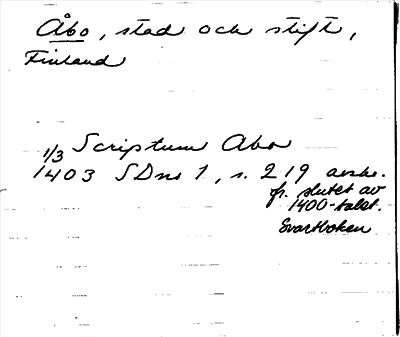 Åbo, stad och stift,
Finland
1/3 Scriptum Abo
1403 SDns 1, s. 219 avskr.
fr. slutet av
1400-talet.
Svartboken